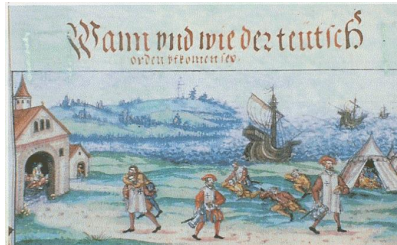 Wann vnd wie der teutsch
orden vfkomen sey.